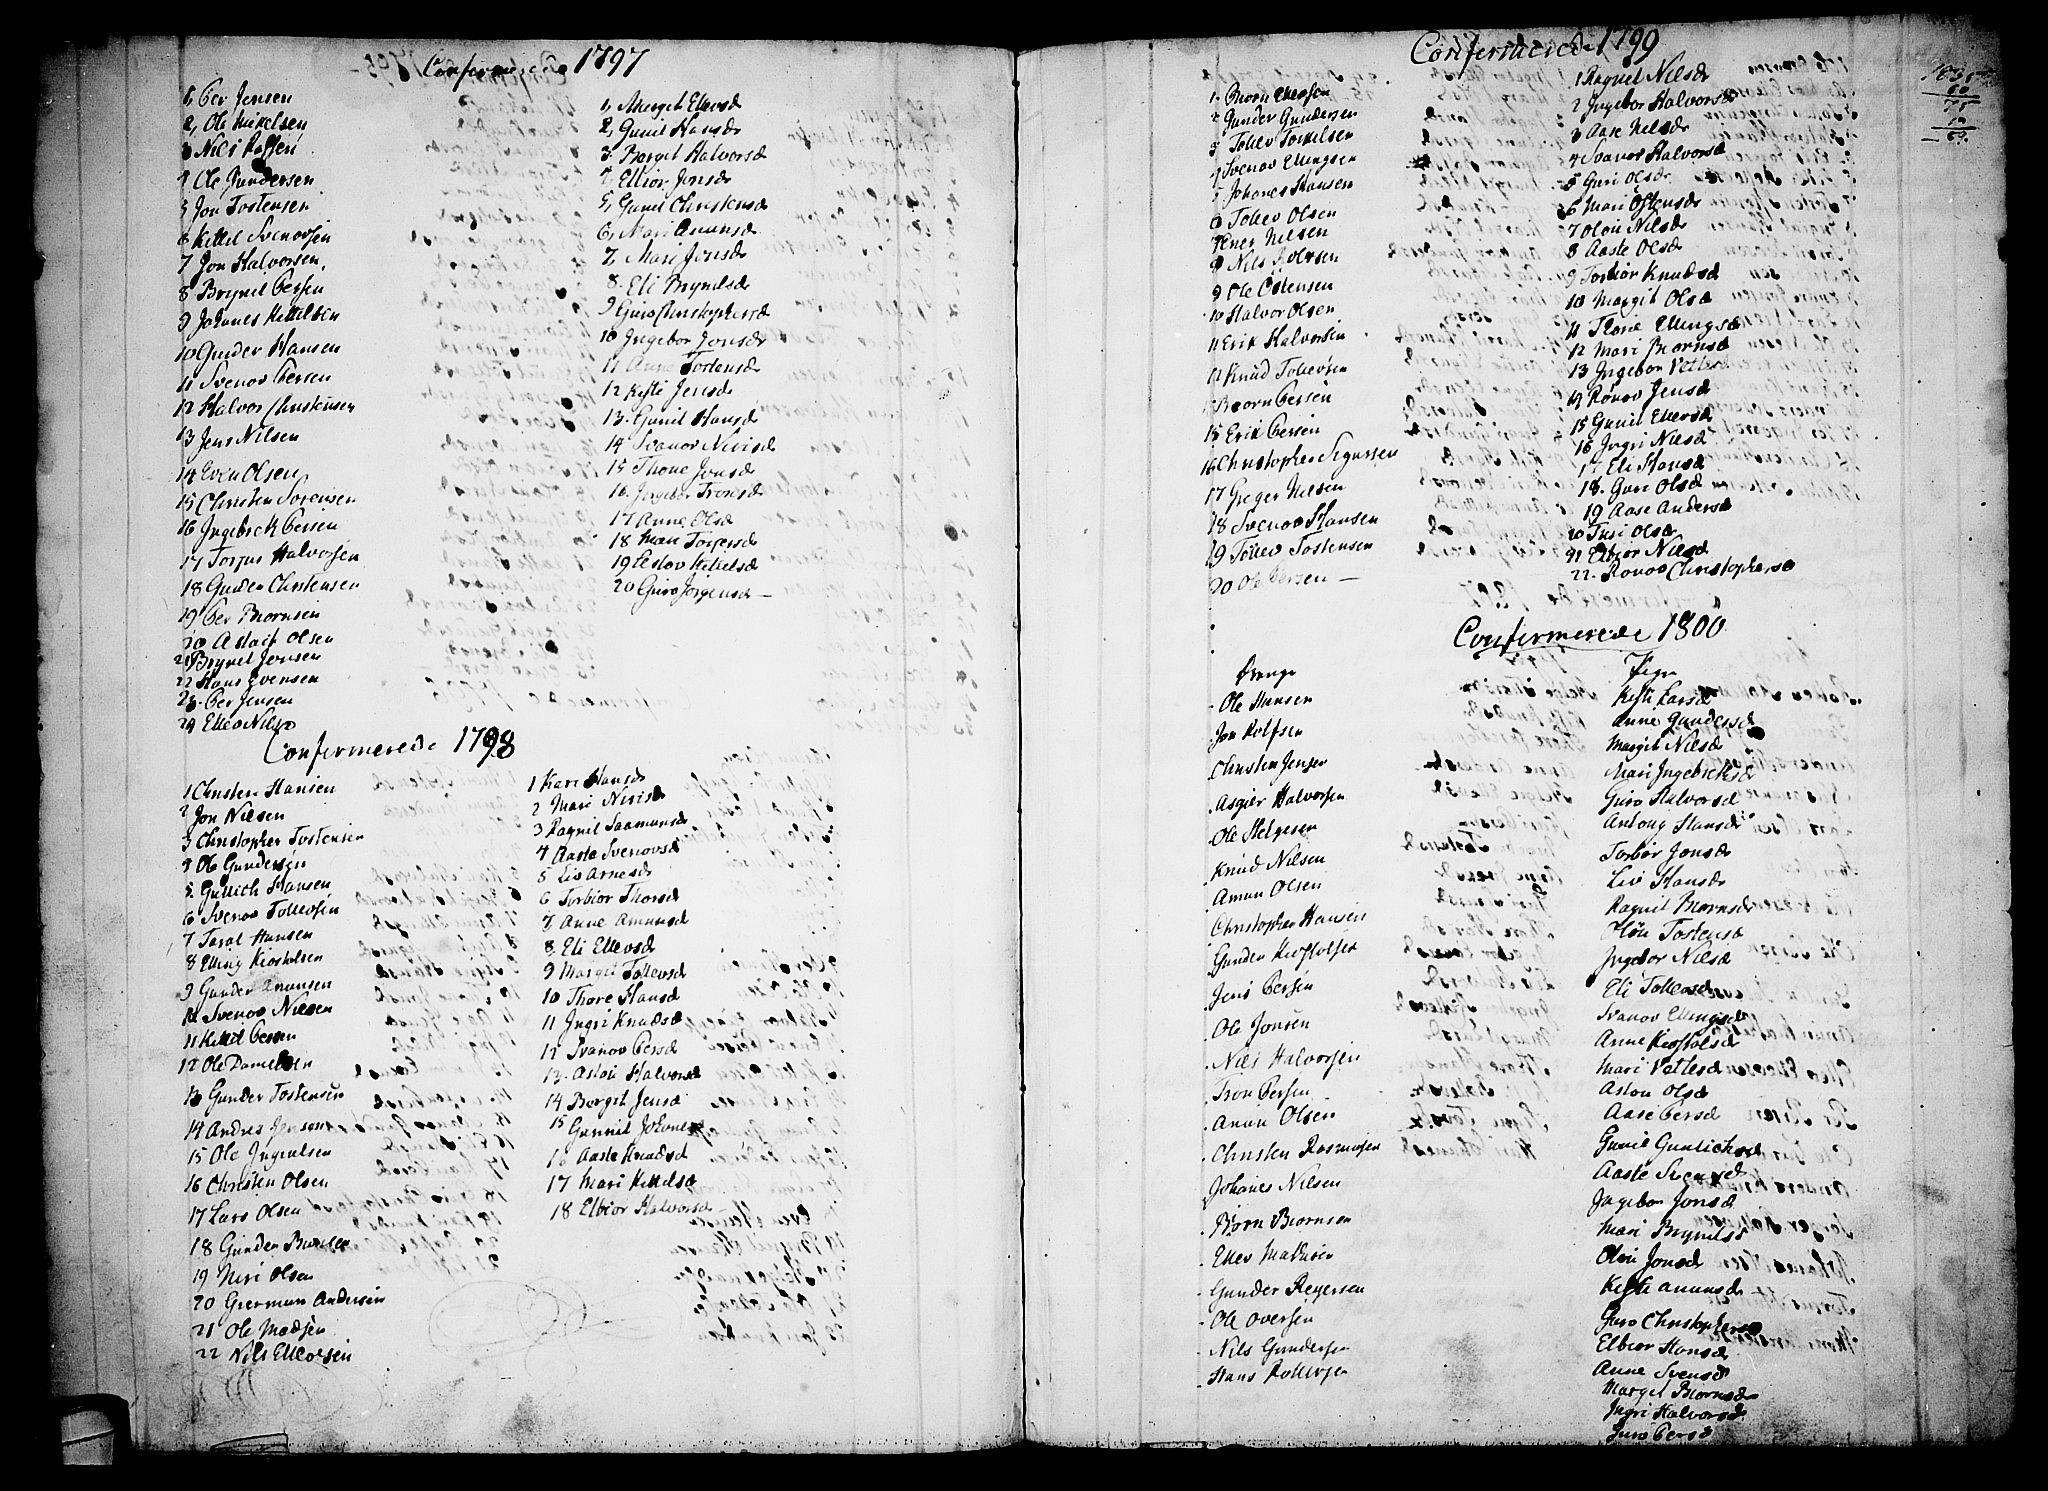 Confirmerede 1797
1, Per Jensen
2, Ole Mikelsen
3 Nils
4 Ole Gundersen
5 Jon Tostensen
6 Kittil Svenovsen
7 Jon Halvorsen
8 Brynil Persen
9 Johanes Kittelsen
10 Gunder Hansen
11 Svenov Persen
12 Halvor Christensen
13 Jens Nilsen
14 Even Olsen
15 Christen Sorensen
16 Ingebrek Persen
17 Torjus Halvorsen
18 Gunder Christensen
19 Per Biornsen
20 Aslach Olsen
21 Brynil Jonsen
22 Hans Evensen
23 Per Jensen
24 Ellev Nilsen
1, Margit Ellevsd
2, Gunil Hansd
3. Bergit Halvorsd
4 Elbior Jonsd
5, Gunil Christensd
6, Mari Amunsd
7, Mari Jonsd
8. Eli Brynilsd
9 Guro Christophersd
10 Ingebor Jonsd
11 Anne Tostensd
12 Kisti Jensd
13. Gunil Hansd
14 Svanov Nirisd
15 Thone Jonsd
16. Ingebor Tronsd
17 Anne Olsd
18 Mari Torgersd
19 Leslov Kittelsd
20 Guro Jorgensd
Confirmerede 1798
1 Christen Hansen
2 Jon Nilsen
3 Christopher Tostensen
4 Ole Gundersen
5. Gullich Hansen
6 Svenov Tollevsen
7 Taral Hansen
8 Elling Kiostolsen
9 Gunder Knudsen
10 Svenov Nilsen
11 Kittil Persen
12 Ole Danielsen
13 Gunder Tostensen
14 Andres Jensen
15 Ole Ingrilsen
16 Christen Olsen
17 Lars Olsen
18 Gunder
19 Niri Olsen
20 Gierman Andersen
21 Ole Madsen
22 Nils Ellevsen
1 Kari Hansd
2 Mari Nirisd
3 Ragnil Saamunsd
4 Aaste Svenovsd
5 Liv Arnesd
6 Torbior Thorsd
7 Anne Amunsd
8. Eli Ellevsd
9 Margit Tollevsd
10 Thore Hansd
11 Ingri Knudsd
12 Svanov Persd
13. Aslou Halvorsd
14 Bergit Jensd
15 Gunnil Johanesd
16 Aaste Knudsd
17 Mari Kittelsd
18 Elbior Halvorsd
Confirmerede 1799
1. Biorn Ellevsen
2 Gunder Gundersen
3 Tollev Torkilsen
4 Svenov Ellingsen
5 Johanes Hansen
6 Tollev Olsen
7 Nilsen
8 Nils
9 Ole Ostensen
10 Halvor Olsen
11 Erik Halvorsen
12 Knud Tollevsen
Biorn Persen
15 Erik Persen
16 Christopher Sigursen
17 Greger Nilsen
18 Svenov Hansen
19 Tollev Tostensen
20 Ole Persen
1 Ragnil Nilsd
2 Ingebor Halvorsd
3 Aase Nilsd
4 Svanov Halvorsd
5 Guri Olsd
6 Mari Ostensd
7 Olou Nilsd
8 Aaste Olsd
9 Torbior Knudsd
10 Margit Olsd
11 Thone Ellingsd
12 Mari Biornsd
13 Ingebor Vetlesd
14 Ronov Jensd
15 Gunil Ellevsd
16 Ingri Nilsd
17 Eli Hansd
18. Guri Olsd
19 Aase Andersd
20 Turi Olsd
21 Elbior Nilsd
22. Ronov Christophersd
1835
60
75
10
69.
Confirmerede 1800.
Drenge
Ole Hansen
Jon Rolfsen
Christen Jensen
Asgier Halvorsen
Ole Helgesen
Knud Nilsen
Amun Olsen
Christopher Hansen
Gunder Kiostolsen
Jens Persen
Ole Jonsen
Nils Halvorsen
Tron Persen
Anun Olsen
Christen Rasmusen
Johanes Nilsen
Biorn Biornsen
Ellev
Gunder Reyersen
Ole Oversen
Nils Gundersen
Hans Rollevsen
Piger
Kisti Larsd
Anne Gundersd
Margit Nilsd
Mari Ingebrektsd
Guro Halvorsd
Antony Hansd
Torbor Jonsd
Live Hansd
Ragnil Biornsd
Olou Tostensd
Ingebor Nilsd
Eli Tollevsd
Svanov Ellingsd
Anne Kiostolsd
Mari Vetlesd
Aslou Olsd
Aase Persd
Gunil Gunlichsd
Aaste Svensd
Ingebor Jonsd
Mari Brynilsd
Olou Jonsd
Kisti Amunsd
Guro Christophersd
Elbior Hansd
Anne Svensd
Margit Biornsd
Ingri Halvorsd
Guro Persd